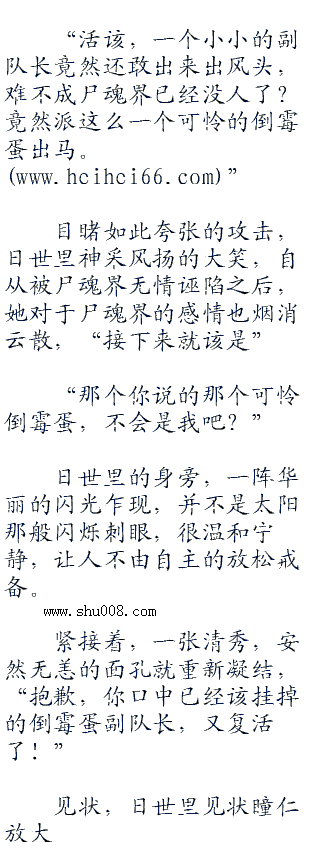 “活该，一个小小的副
队长竟然还敢出来出风头，
难不成尸魂界已经没人了？
竟然派这么一个可怜的倒霉
蛋出马。
(www.hcihci66.com)”
目睹如此夸张的攻击，
日世里神采风扬的大笑，自
从被尸魂界无情诬陷之后，
她对于尸魂界的感情也烟消
云散，“接下来就该是”
“那个你说的那个可怜
倒霉蛋，不会是我吧？”
日世里的身旁，一阵华
丽的闪光乍现，并不是太阳
那般闪烁刺眼，很温和宁
静，让人不由自主的放松戒
备。
www.shu008.com
紧接着，一张清秀，安
然无恙的面孔就重新凝结，
“抱歉，你口中已经该挂掉
的倒霉蛋副队长，又复活
了！”
见状，日世里见状瞳仁
放大